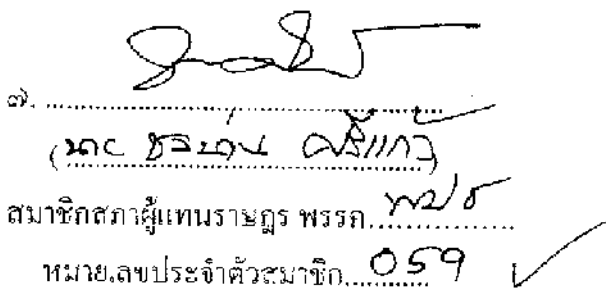 ๗. ........................................................
(นาย ชลน่าน ศรีแก้ว)
สมาชิกสภาผู้แทนราษฎร พรรค พปช
หมายเลขประจำตัวสมาชิก 059